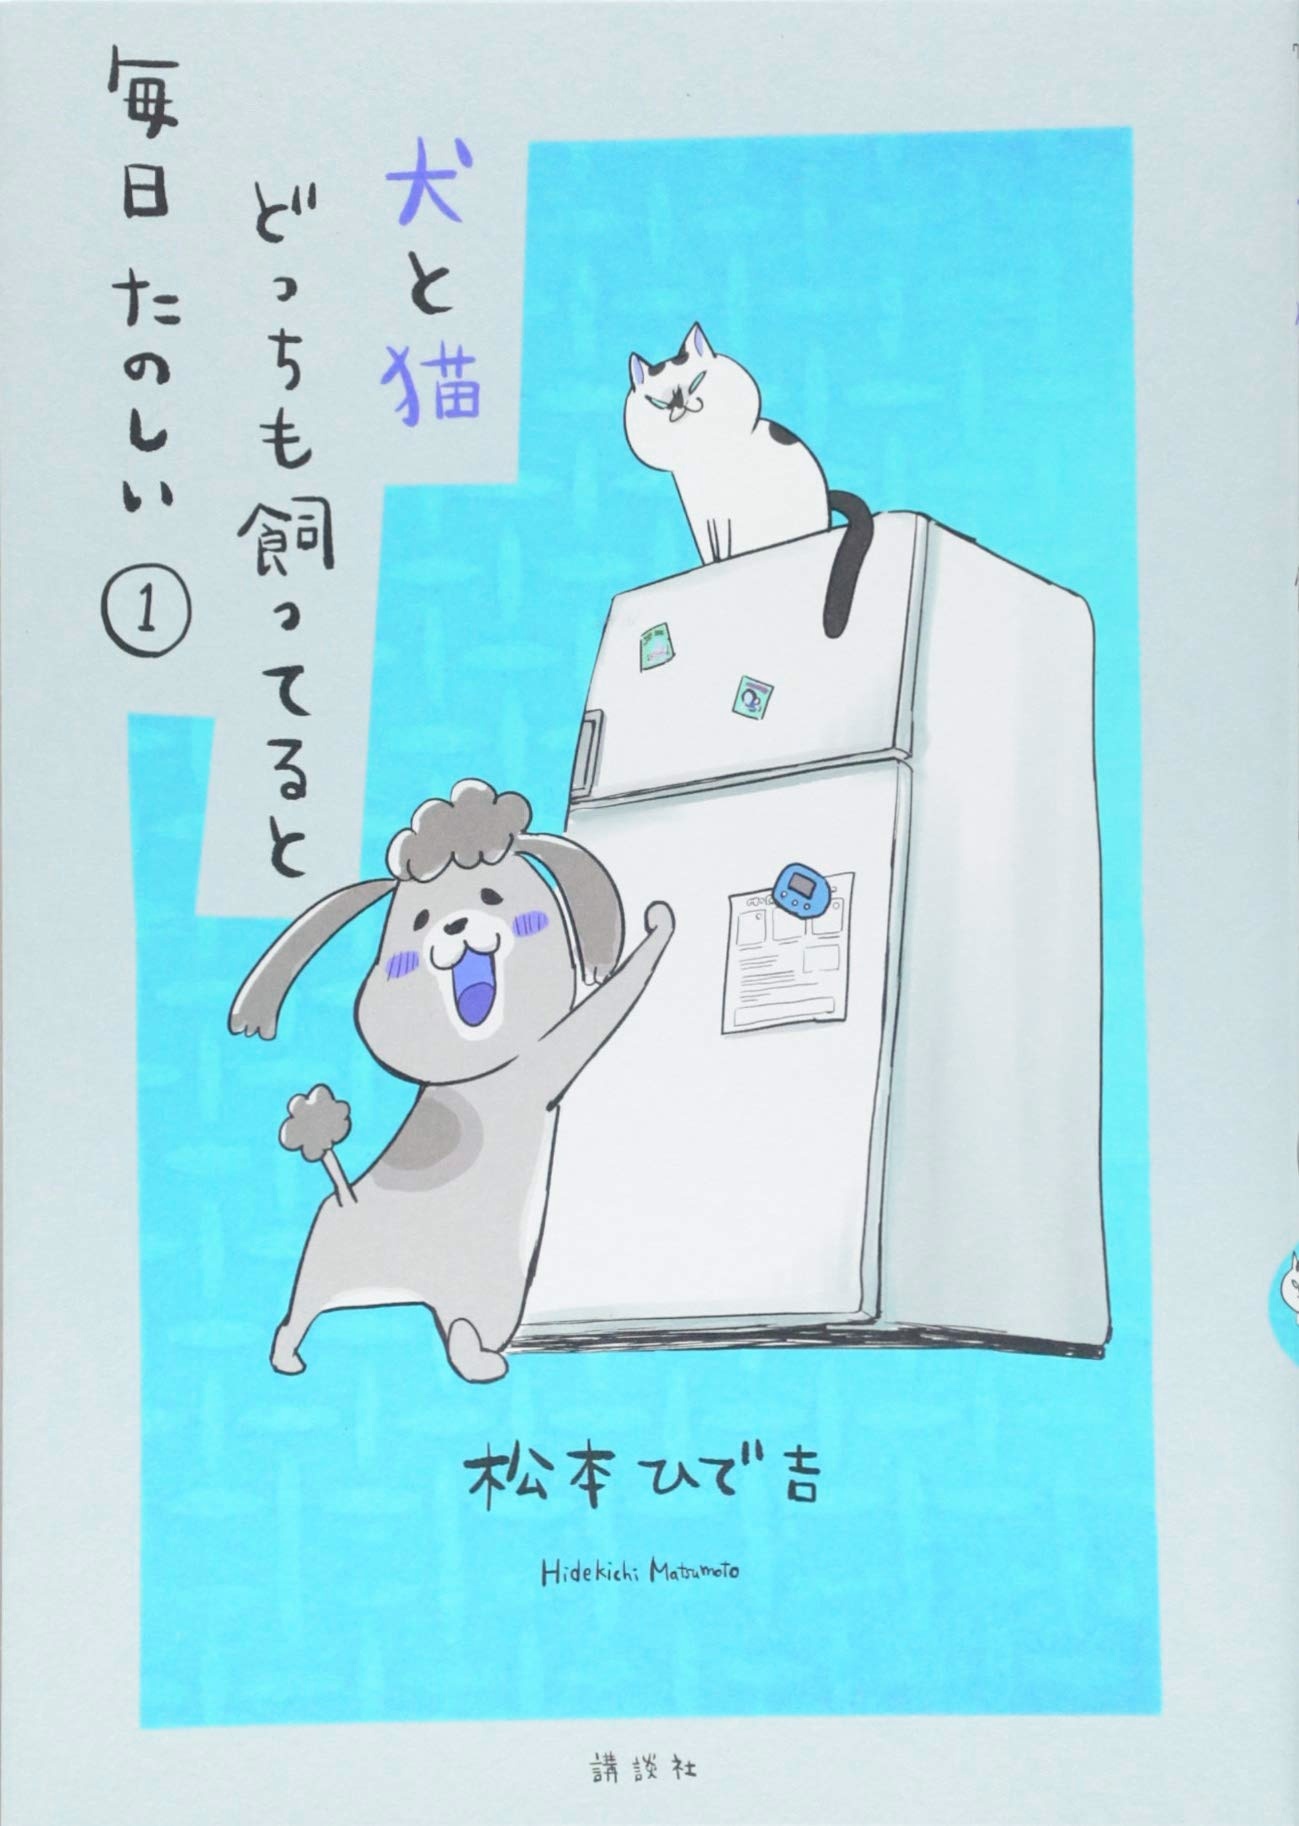 犬と猫
どっちも飼ってると
毎日たのしい
1
松本ひで吉
Hidekichi Matsumoto
講談社